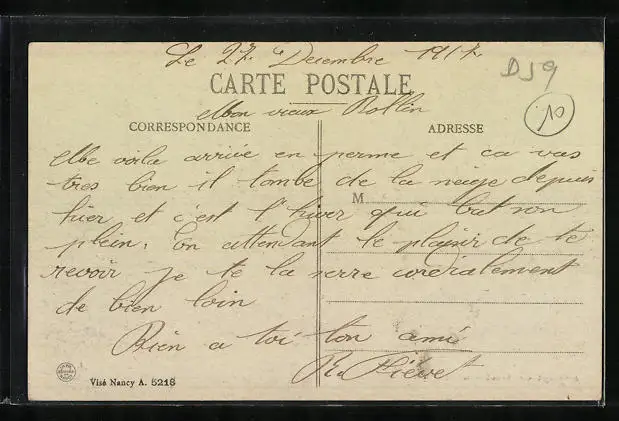 Le 27 Decembre 1917
D59
10
CARTE POSTALE
Mon vieux Rollin
CORRESPONDANCE
ADRESSE
M
Me voila arrivée en perme et ca vas
tres bien il tombe de la neige depuis
hier et c'est l'hiver qui bat son
plein. En attendant le plaisir de te
revoir je te la serre cordialement
de bien loin
Bien a toi ton ami
Visé Nancy A. 5218